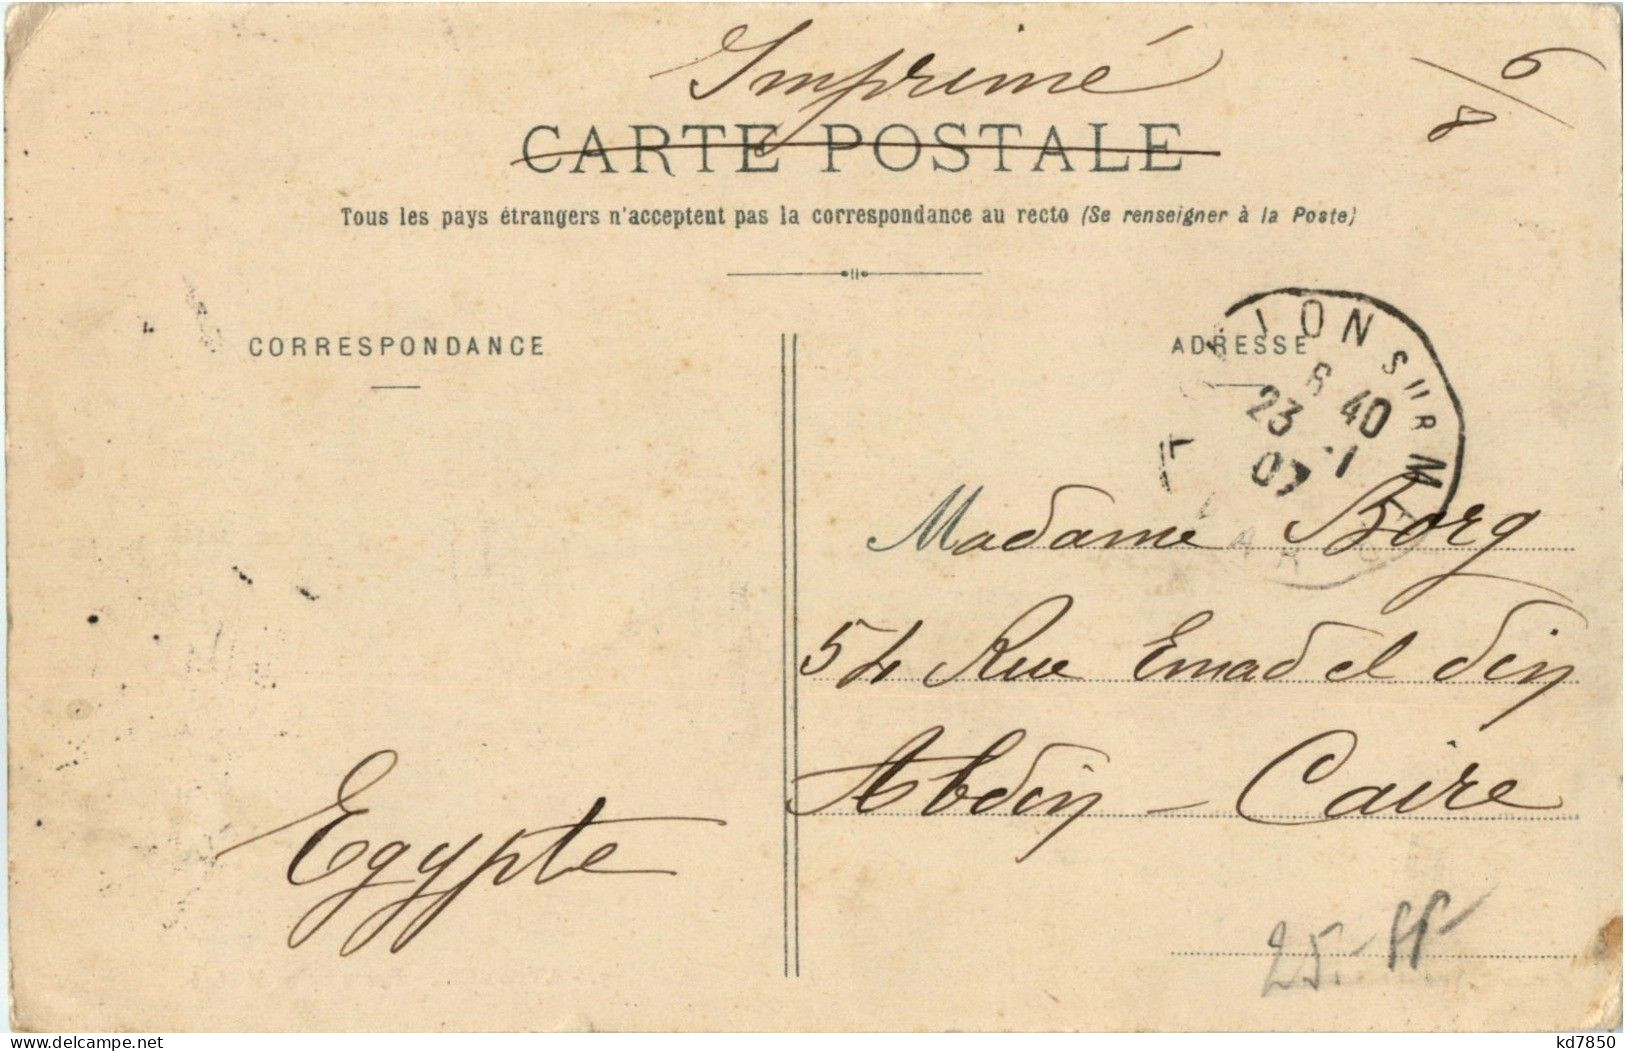 Imprimé
6/8
CARTE POSTALE
Tous les pays étrangers n'acceptent pas la correspondance au recto (Se renseigner à la Poste)
CORRESPONDANCE
ADRESSE
ION SUR M
6 40
23 -1
07
Madame Borg
54 Rue Emad el din
Abdin - Caire
Egypte
25.-
kd7850